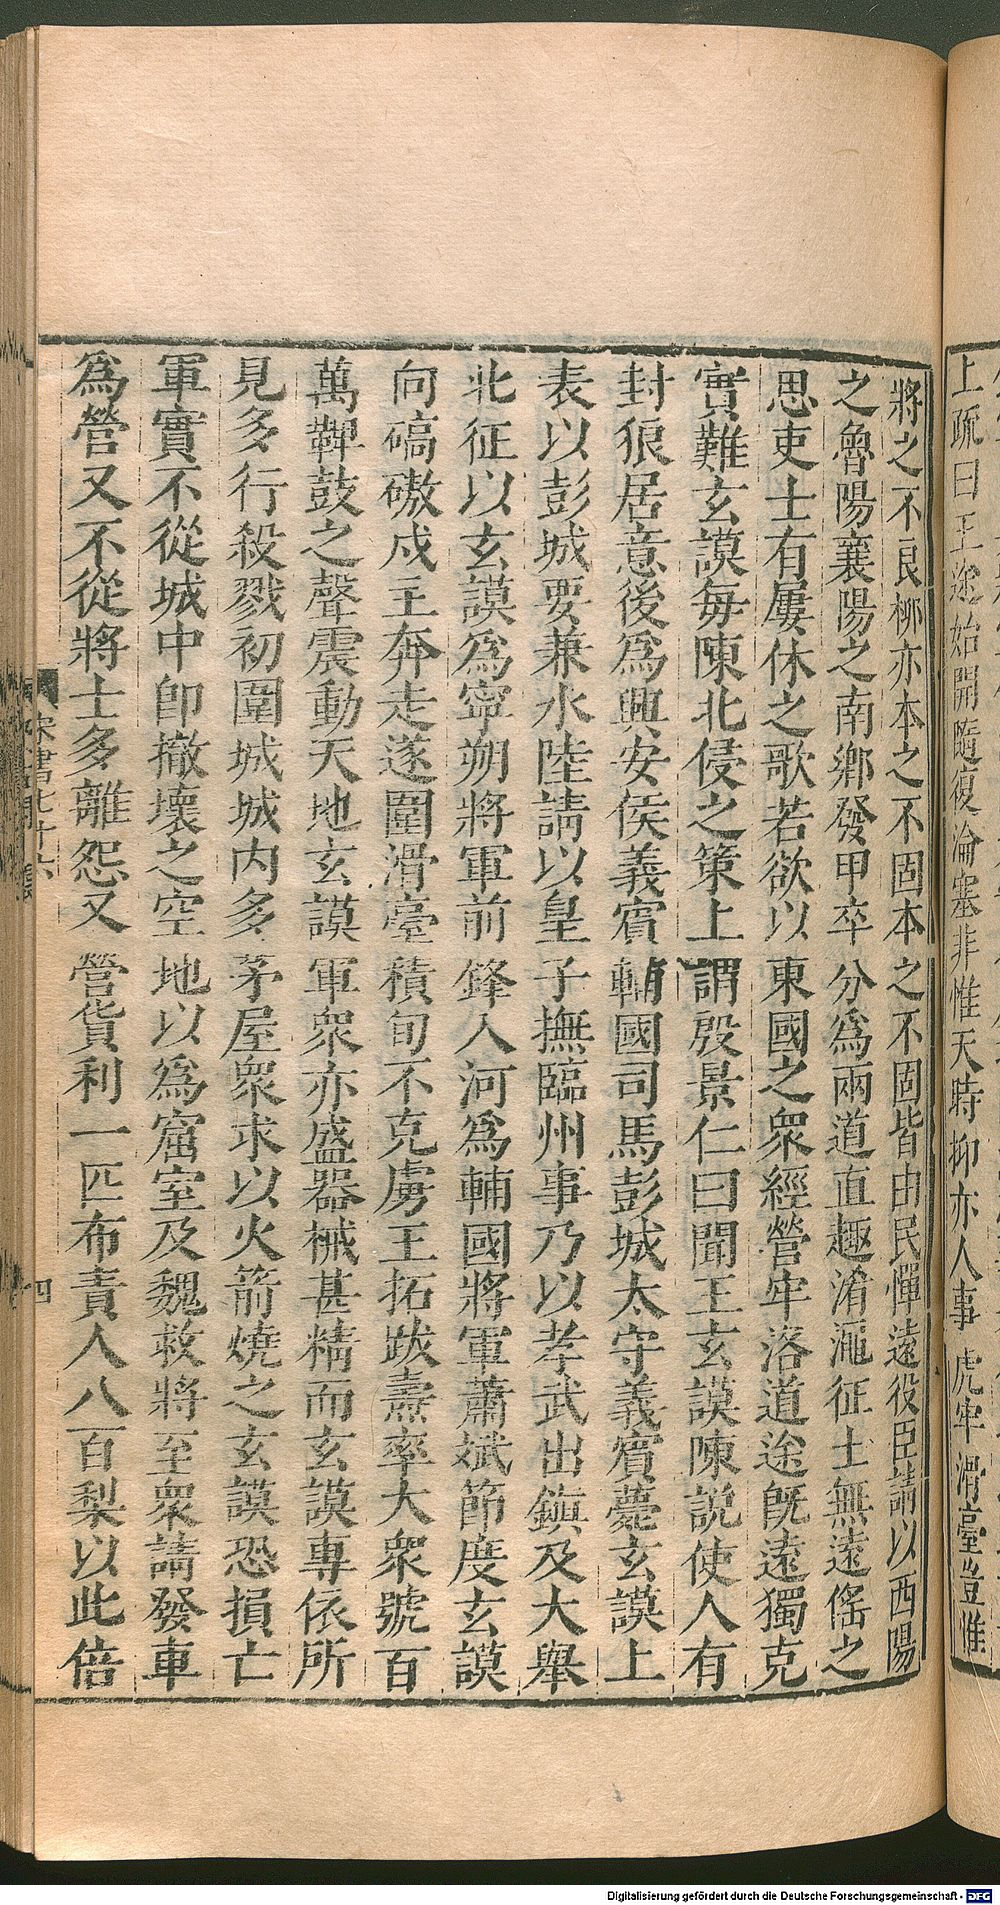 上疏曰王途始開隨復淪塞非惟天時抑亦人事虎牢滑臺豈惟
將之不良抑亦本之不固本之不固皆由民憚遠役臣請以西陽
之魯陽襄陽之南鄉發甲卒分爲兩道直趣淆澠征士無遠傜之
思吏士有屢休之歌若欲以東國之衆經營牢洛道途旣遠獨克
實難玄謨每陳北侵之策上謂殷景仁曰聞王玄謨陳說使人有
封狼居意後爲興安侯義賓輔國司馬彭城太守義賓薨玄謨上
表以彭城要兼水陸請以皇子撫臨州事乃以孝武出鎭及大舉
北征以玄謨爲寧朔將軍前鋒入河爲輔國將軍蕭斌節度玄謨
向碻磝戍主奔走遂圍滑臺積旬不克虜王拓跋燾率大衆號百
萬鞞鼓之聲震動天地玄謨軍衆亦盛器械甚精而玄謨專依所
見多行殺戮初圍城城内多茅屋衆求以火箭燒之玄謨恐損亡
軍實不從城中卽撤壞之空地以爲窟室及魏救將至衆請發車
爲營又不從將士多離怨又營貨利一匹布責人八百梨以此倍
宋書七十六
四
Digitalisierung gefördert durch die Deutsche Forschungsgemeinschaft - DFG